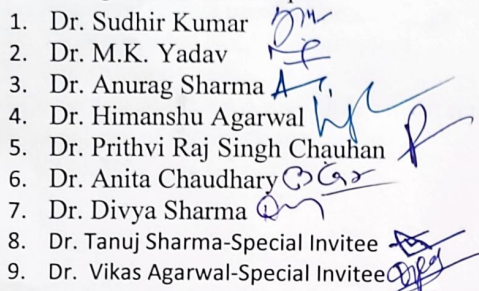 1. Dr. Sudhir Kumar
2. Dr. M.K. Yadav
3. Dr. Anurag Sharma
4. Dr. Himanshu Agarwal
5. Dr. Prithvi Raj Singh Chauhan
6. Dr. Anita Chaudhary
7. Dr. Divya Sharma
8. Dr. Tanuj Sharma-Special Invitee
9. Dr. Vikas Agarwal-Special Invitee